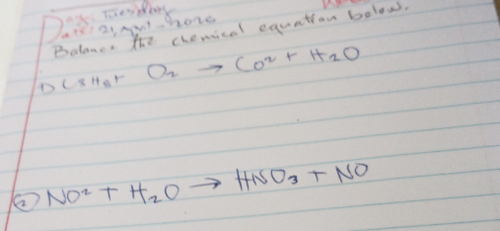 Day: Tuesday
Date: 21, April - 2026
Balance the chemical equation below.
1) C3H8 + O2 → CO² + H2O
2) NO² + H2O → HNO3 + NO